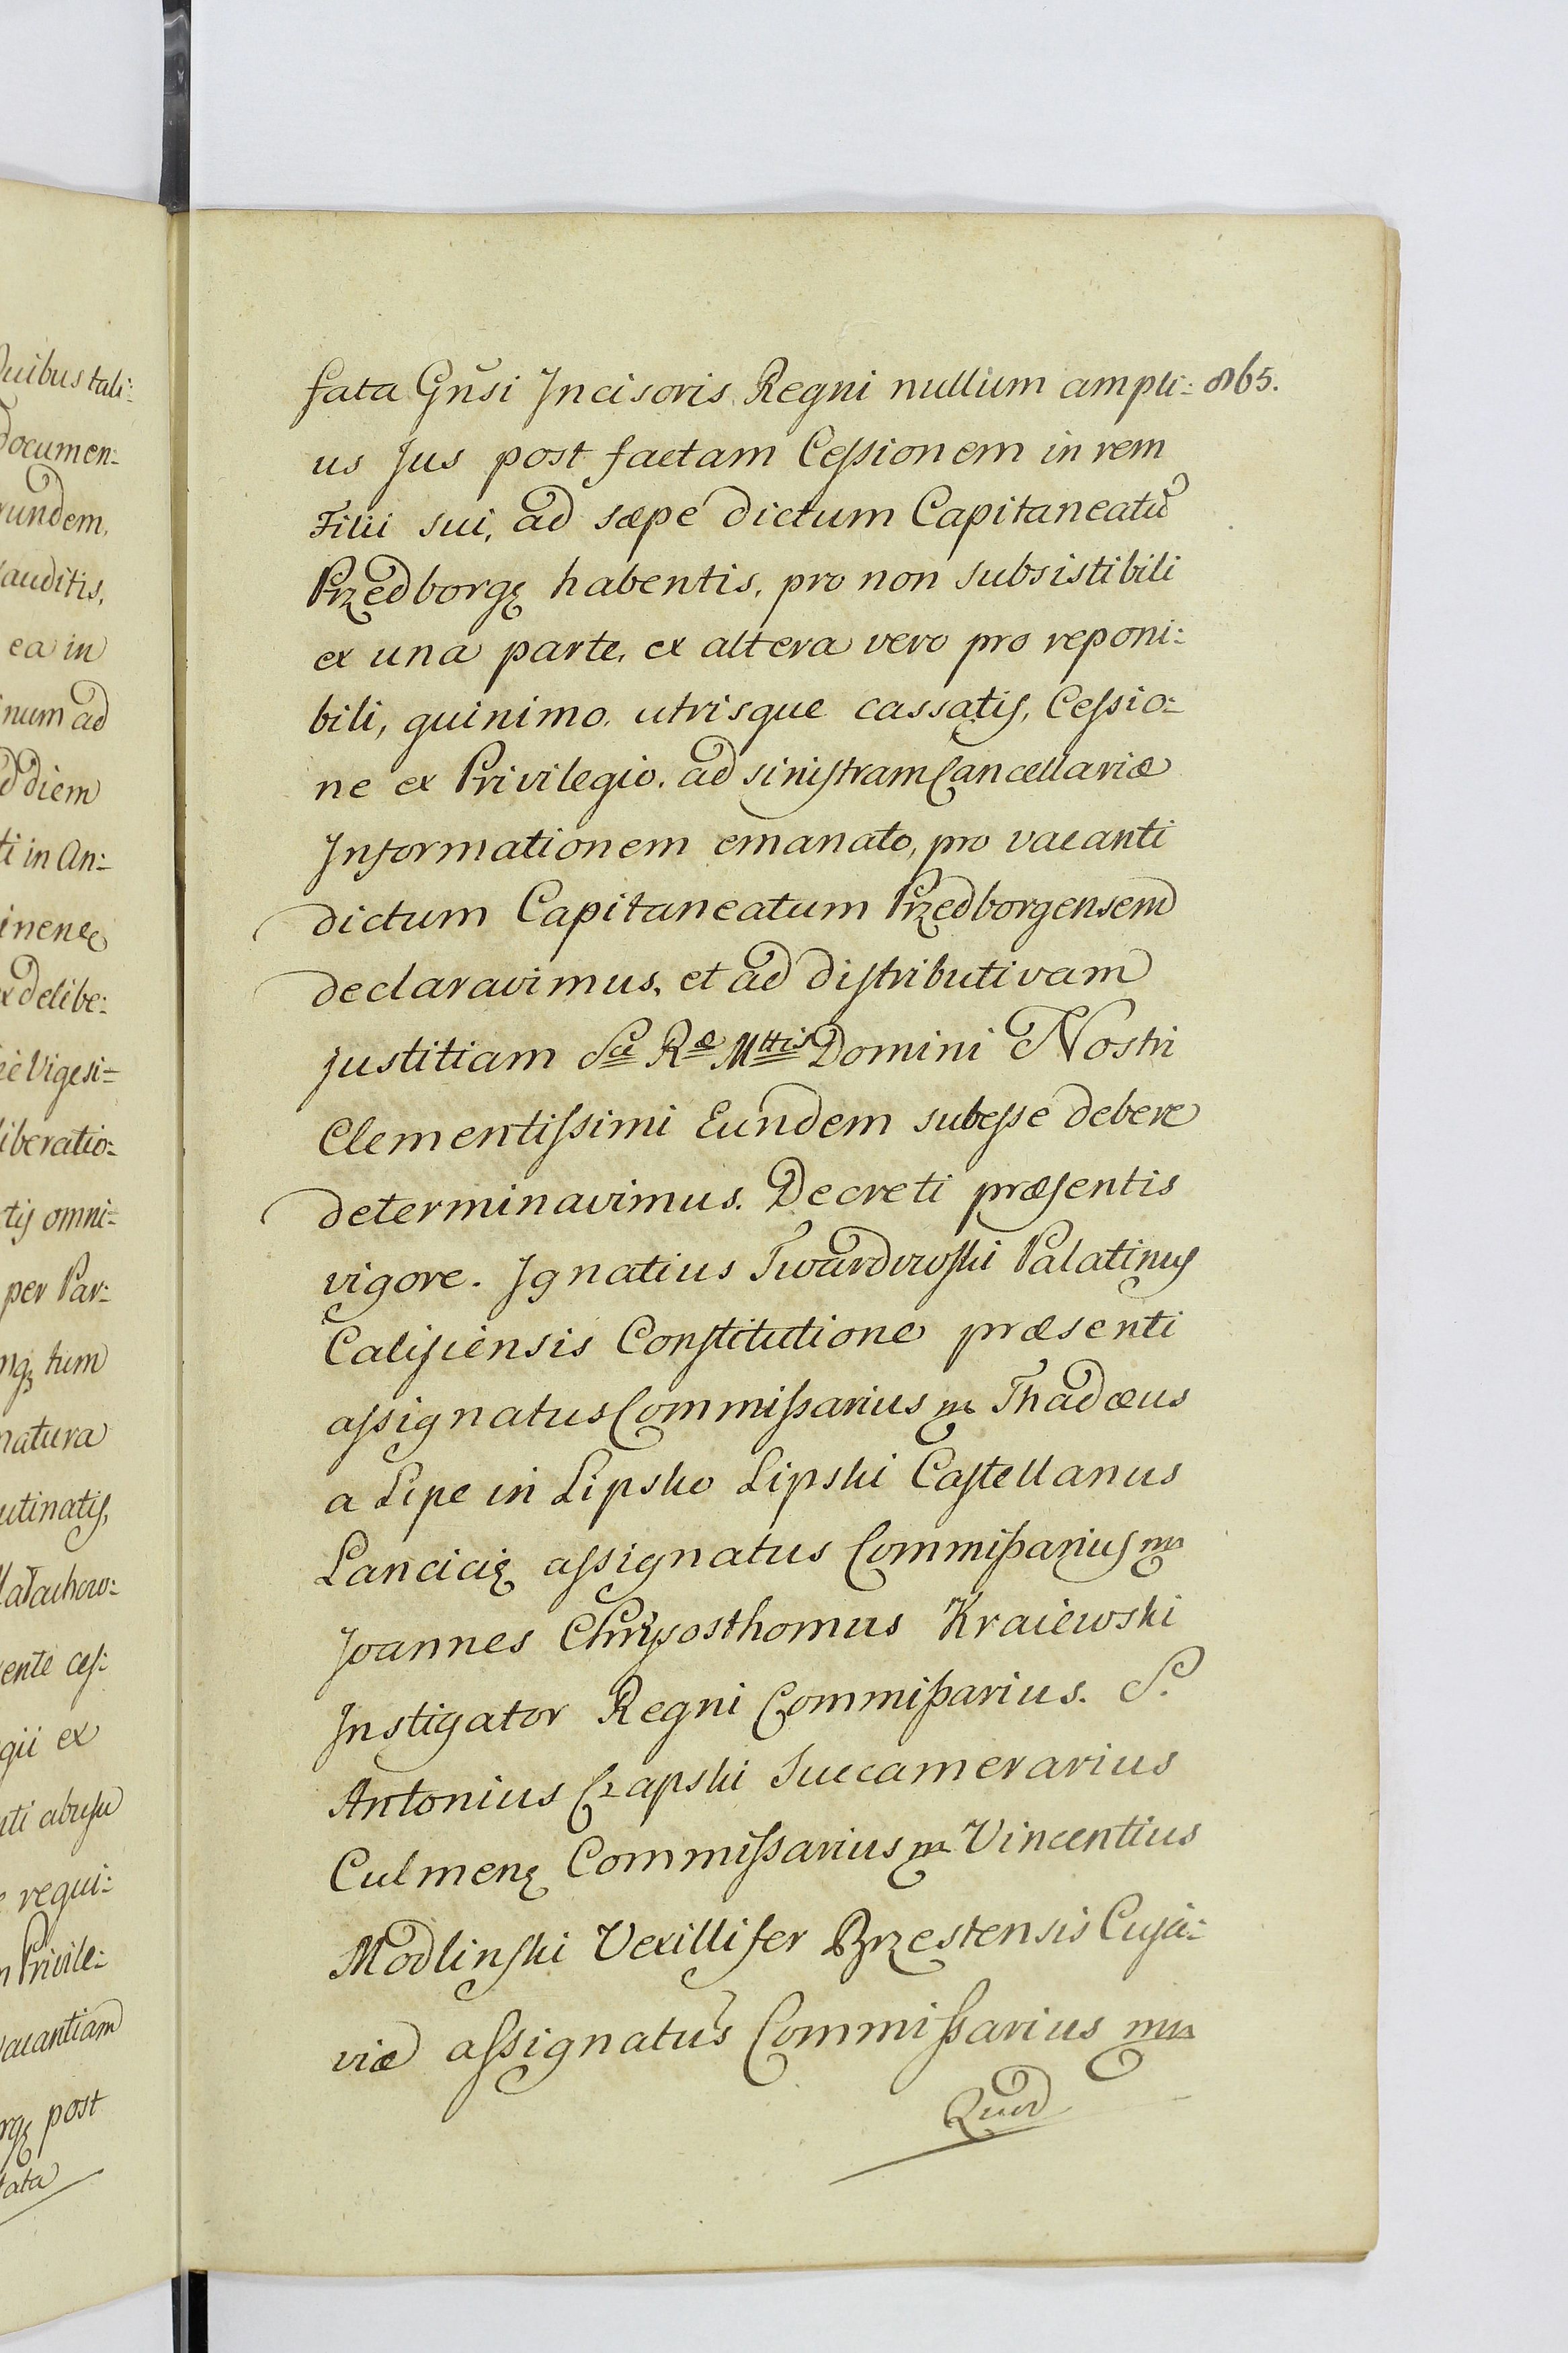 uibus tali:
Documen:
undem,
auditis,
ea in
num ad
diem
ti in An:
inene
delibe:
Vigesi=
liberatio:
tis omni:
per Par:
tum
natura
utinatis,
ente ces:
gii ex
nti abusu
requi:
Privile:
vacantiam
post
fata
fata Gnsi Incisoris Regni nullum ampli: 865.
us Jus post factam Cessionem in rem
Filii sui, ad sæpe dictum Capitaneatū
Przedborgę habentis, pro non subsistibili
ex una parte, ex altera vero pro reponi:
bili, quinimo. utrisque cassatis, Cessio:
ne ex Privilegio. ad sinistram Cancellariæ
Informationem emanato, pro vacanti
dictum Capitaneatum Przedborgensem
declaravimus, et ad distributivam
justitiam Sæ Ræ Mttis Domini Nostri
Clementissimi Eundem subesse debere
determinavimus. Decreti præsentis
vigore. Ignatius Twardowski Palatinus
Calisiensis Constitutione præsenti
assignatus Commissarius mp Thadæus
a Lipe in Lipsko Lipski Castellanus
Lancicię assignatus Commissarius mp
Joannes Chrysosthomus Kraiewski
Instigator Regni Commissarius. S.
Antonius Czapski Succamerarius
Culmenę Commissarius mp Vincentius
Modlinski Vexillifer Brzestensis Cuja:
viæ assignatus Commissarius mp
Quod